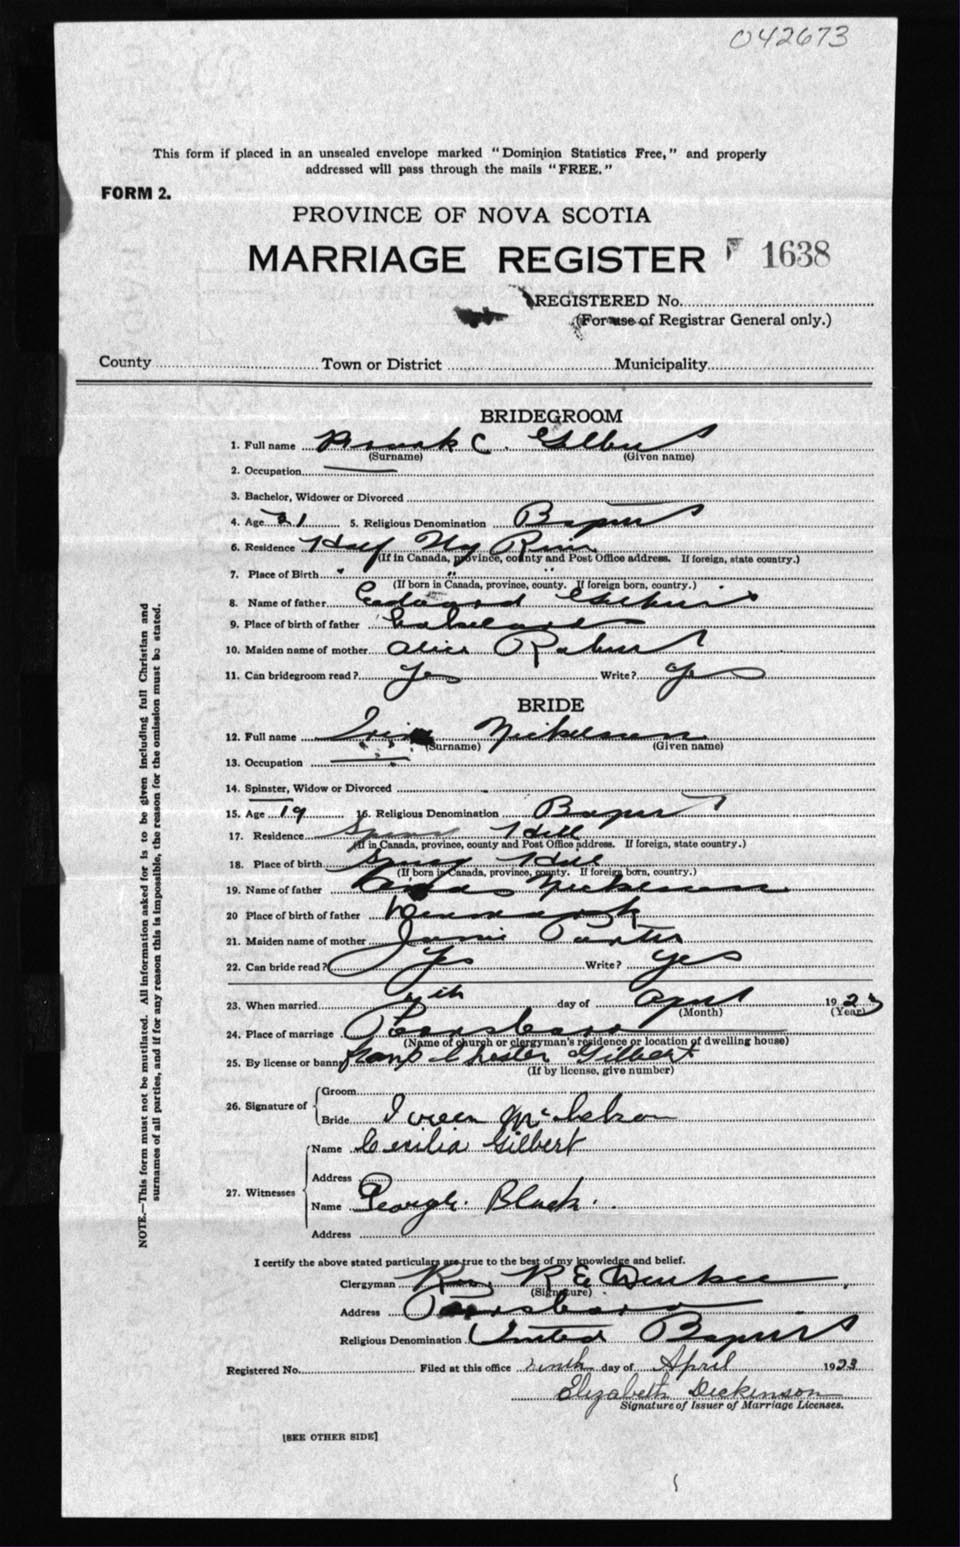 042673
This form if placed in an unsealed envelope marked "Dominion Statistics Free," and properly
addressed will pass through the mails "FREE."
FORM 2.
PROVINCE OF NOVA SCOTIA
MARRIAGE REGISTER 1638
REGISTERED No.
(For use of Registrar General only.)
County Town or District Municipality
BRIDEGROOM
1. Full name Frank C. Gilbert
(Surname) (Given name)
2. Occupation
3. Bachelor, Widower or Divorced
4. Age 21 5. Religious Denomination Baptist
6. Residence Half Way River
(If in Canada, province, county and Post Office address. If foreign, state country.)
7. Place of Birth " " "
(If born in Canada, province, county. If foreign born, country.)
8. Name of father Edward Gilbert
9. Place of birth of father
10. Maiden name of mother Alice
11. Can bridegroom read? Yes Write? Yes
BRIDE
12. Full name Nickelson
(Surname) (Given name)
13. Occupation
14. Spinster, Widow or Divorced
15. Age 19 16. Religious Denomination Baptist
17. Residence Spring Hill
(If in Canada, province, county and Post Office address. If foreign, state country.)
18. Place of birth Spring Hill
(If born in Canada, province, county. If foreign born, country.)
19. Name of father Nickelson
20 Place of birth of father Denmark
21. Maiden name of mother Porter
22. Can bride read? Yes Write? Yes
23. When married day of April 1923
(Month) (Year)
24. Place of marriage Parrsboro
(Name of church or clergyman's residence or location of dwelling house)
25. By license or banns Chester Gilbert
(If by license, give number)
26. Signature of
Groom
Bride Ireen
27. Witnesses
Name Cecilia Gilbert
Address
Name George Black.
Address
I certify the above stated particulars are true to the best of my knowledge and belief.
Clergyman Rev R E
(Signature)
Address Parrsboro
Religious Denomination United Baptist
Registered No. Filed at this office ninth day of April 1923
Elizabeth Dickinson
Signature of Issuer of Marriage Licenses.
[SEE OTHER SIDE]
NOTE.—This form must not be mutilated. All information asked for is to be given including full Christian and
surnames of all parties, and if for any reason this is impossible, the reason for the omission must be stated.